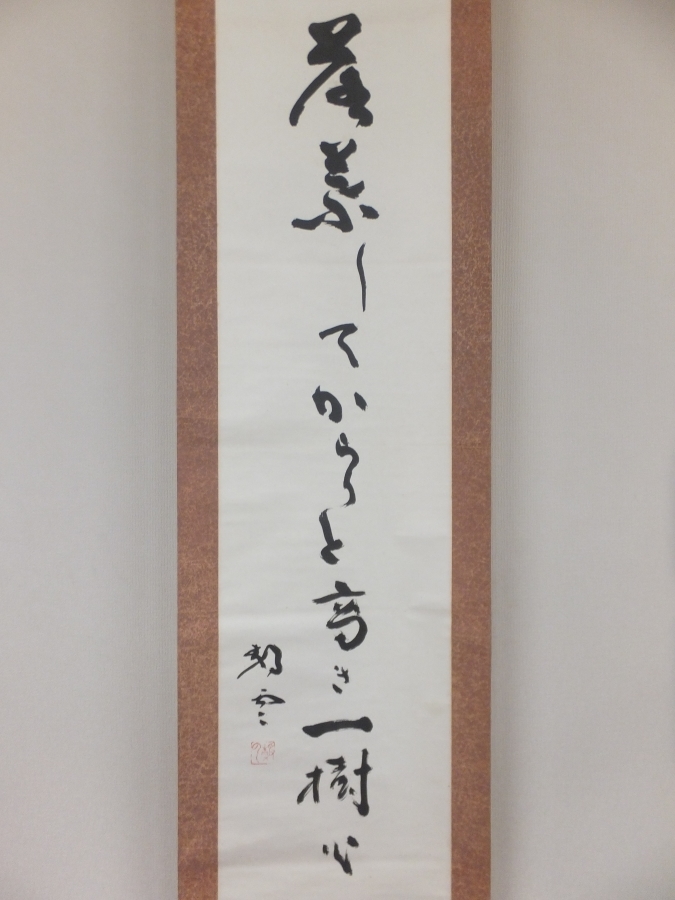 落葉してからりと高き一樹心
静雲